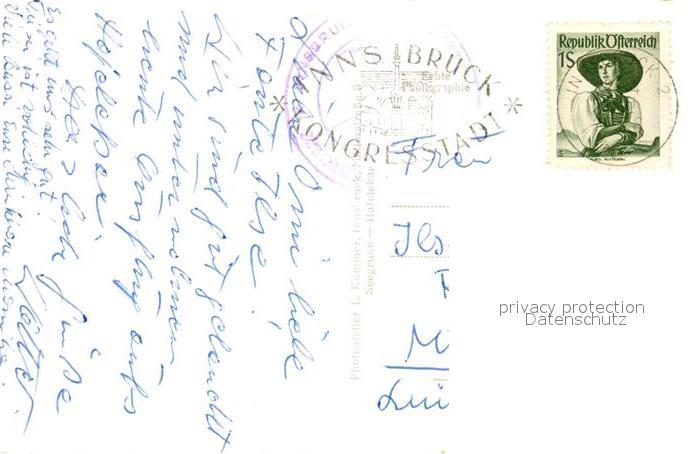 Liebe Omi liebe
Tante Ilse!
Wir sind gut gelandet
und unternehmen
heute Ausflug aufs
Hafelekar.
Herzliche Grüße
Walter.
Es geht uns sehr gut!
INNSBRUCK
KONGRESSTADT
Echte
Photographie
Photoatelier L. Kummer, Innsbruck,
Seegrube — Hafelekar
Republik Österreich
1S
Frau
Ils
M
privacy protection
Datenschutz